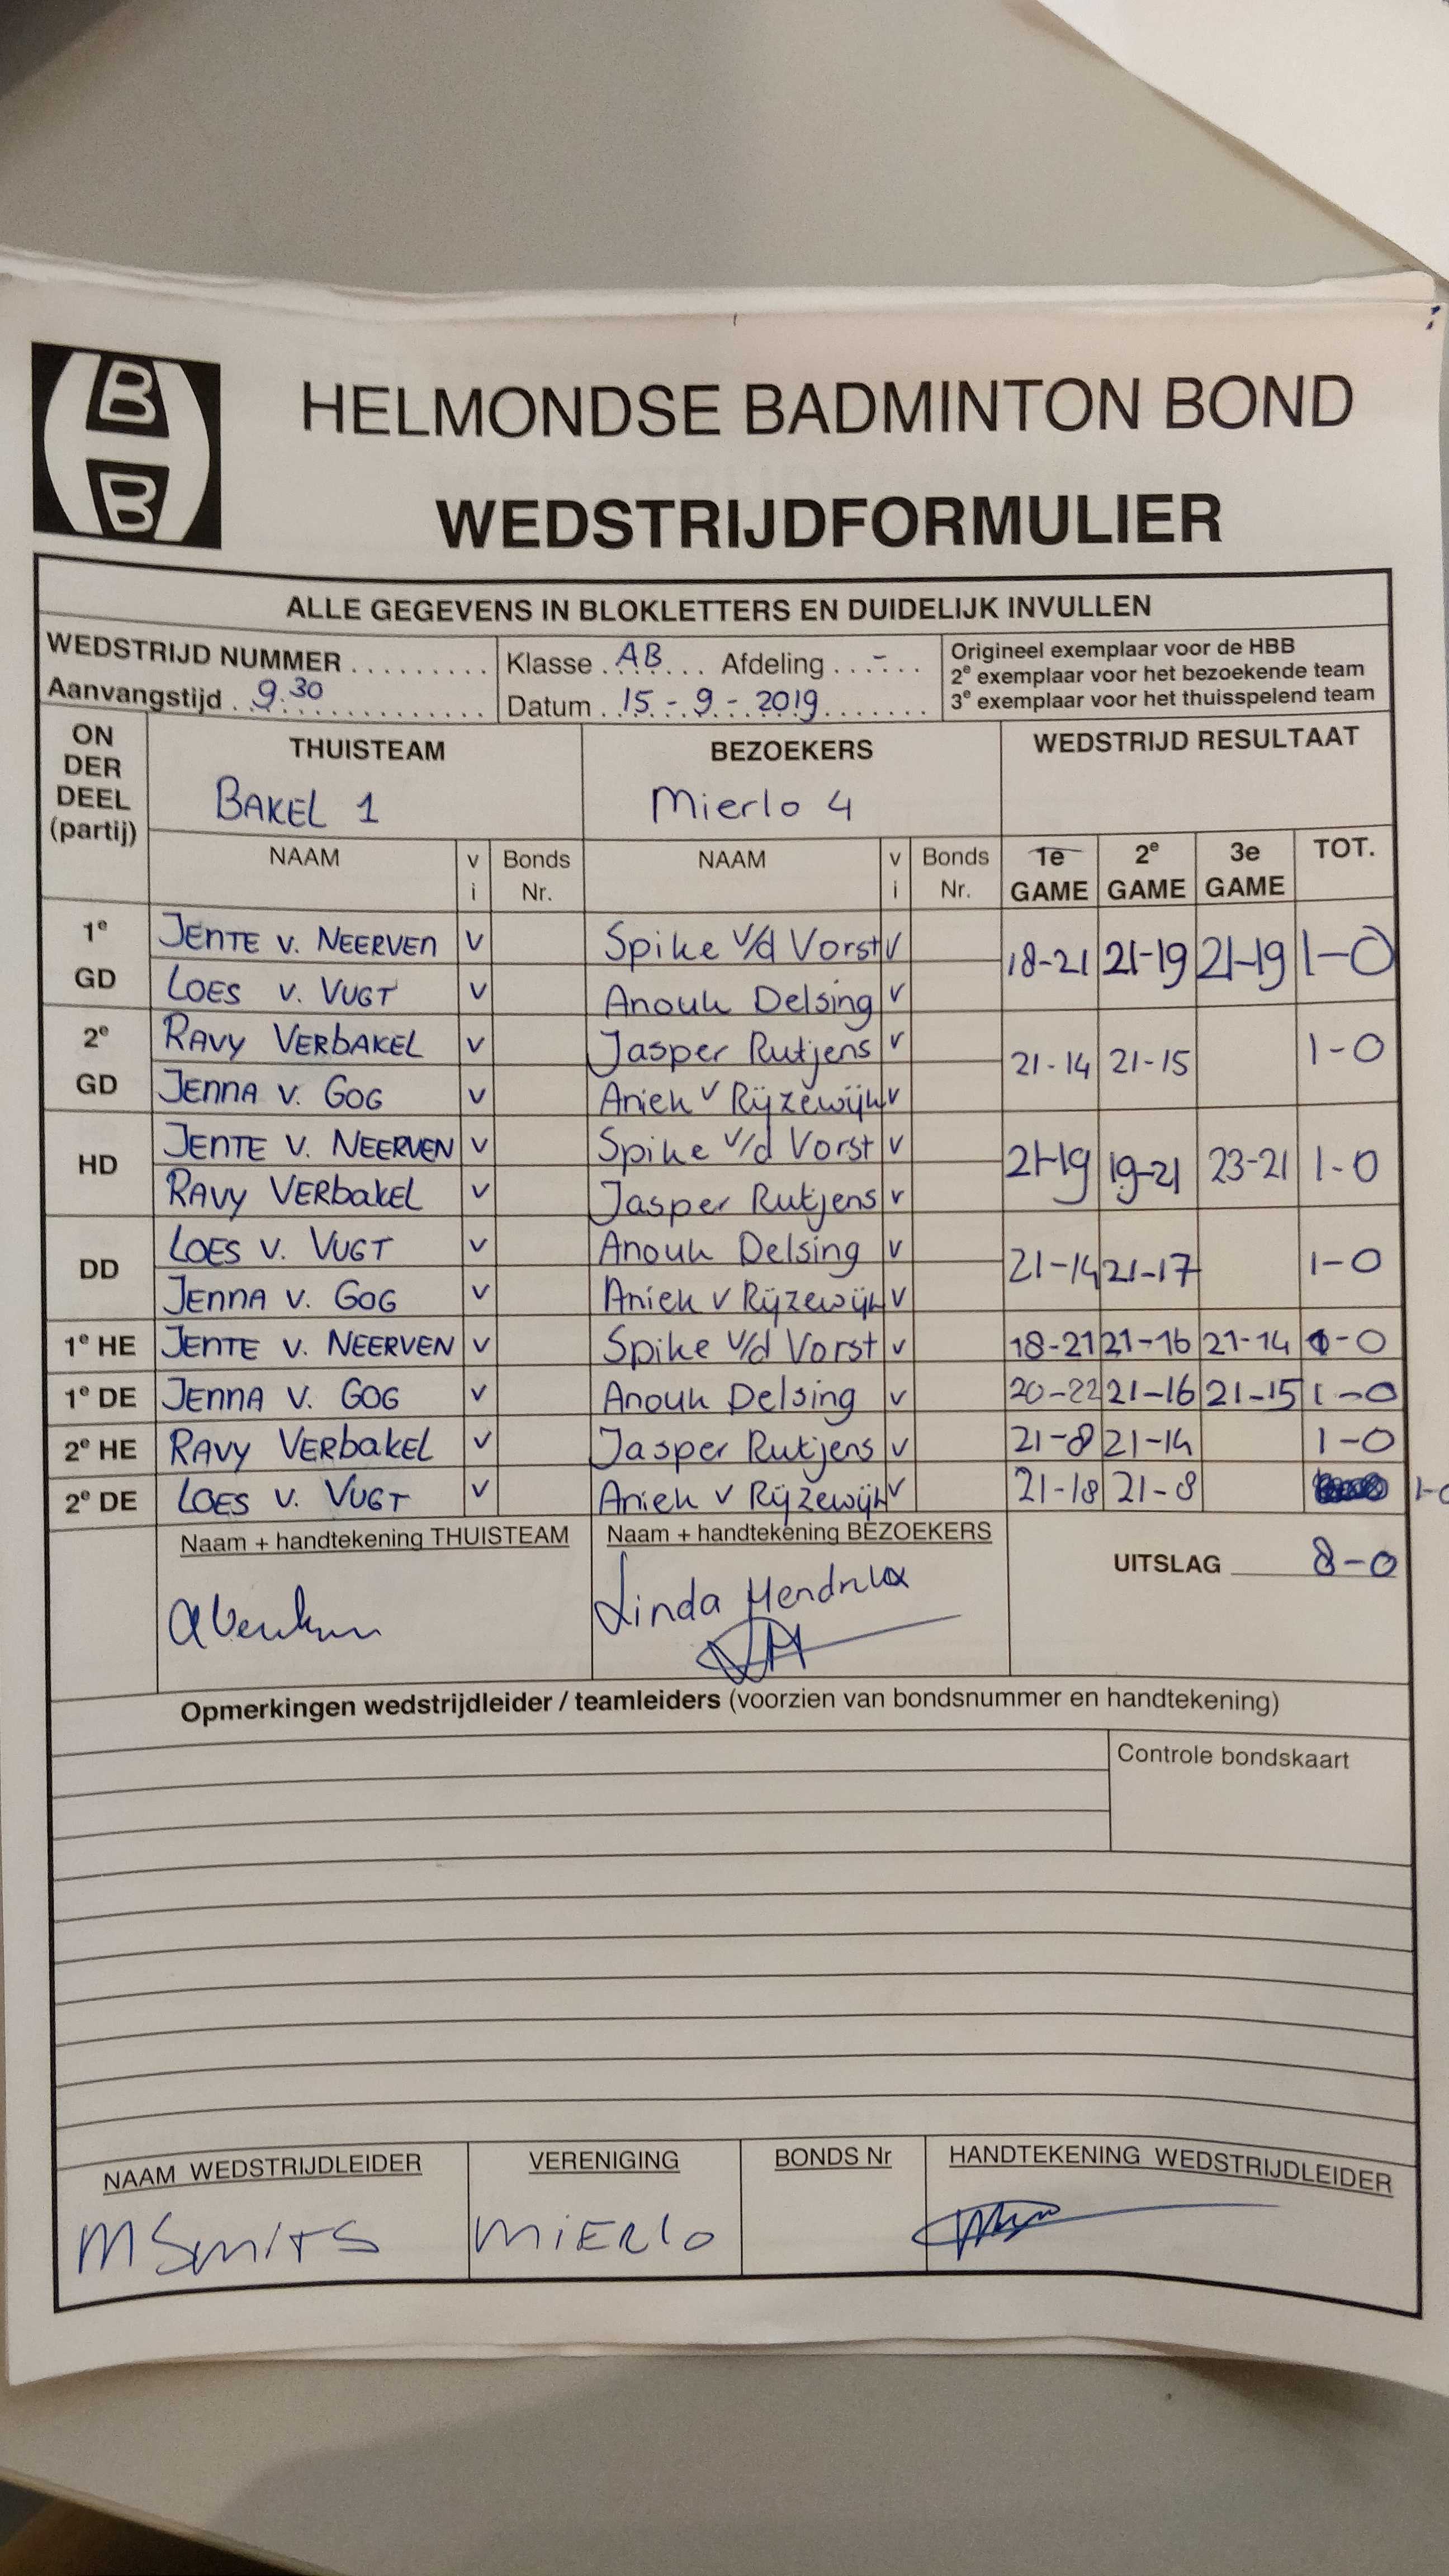 B
B
HELMONDSE BADMINTON BOND
WEDSTRIJDFORMULIER
ALLE GEGEVENS IN BLOKLETTERS EN DUIDELIJK INVULLEN
WEDSTRIJD NUMMER ......... Klasse . AB ... Afdeling ...-... Origineel exemplaar voor de HBB
2e exemplaar voor het bezoekende team
Aanvangstijd . 9.30 ............ Datum .. 15 - 9 - 2019 ....... 3e exemplaar voor het thuisspelend team
ON DER DEEL (partij) THUISTEAM BEZOEKERS WEDSTRIJD RESULTAAT
BAKEL 1 Mierlo 4
NAAM v i Bonds Nr. NAAM v i Bonds Nr. 1e GAME 2e GAME 3e GAME TOT.
1e GD JENTE v. NEERVEN v Spike v/d Vorst v 18-21 21-19 21-19 1-0
LOES v. VUGT v Anouk Delsing v
2e GD RAVY VERBAKEL v Jasper Rutjens v 21-14 21-15 1-0
JENNA v. GOG v Aniek v Rijzewijk v
HD JENTE v. NEERVEN v Spike v/d Vorst v 21-19 19-21 23-21 1-0
RAVY VERbakEL v Jasper Rutjens v
DD LOES v. VUGT v Anouk Delsing v 21-14 21-17 1-0
JENNA v. GOG v Aniek v Rijzewijk v
1e HE JENTE v. NEERVEN v Spike v/d Vorst v 18-21 21-16 21-14 1-0
1e DE JENNA v. GOG v Anouk Delsing v 20-22 21-16 21-15 1-0
2e HE RAVY VERbakEL v Jasper Rutjens v 21-8 21-14 1-0
2e DE LOES v. VUGT v Aniek v Rijzewijk v 21-18 21-8 1-0
Naam + handtekening THUISTEAM Naam + handtekening BEZOEKERS UITSLAG 8-0
Linda Hendrikx
Opmerkingen wedstrijdleider / teamleiders (voorzien van bondsnummer en handtekening)
Controle bondskaart
NAAM WEDSTRIJDLEIDER VERENIGING BONDS Nr HANDTEKENING WEDSTRIJDLEIDER
M SMITS MIERLO